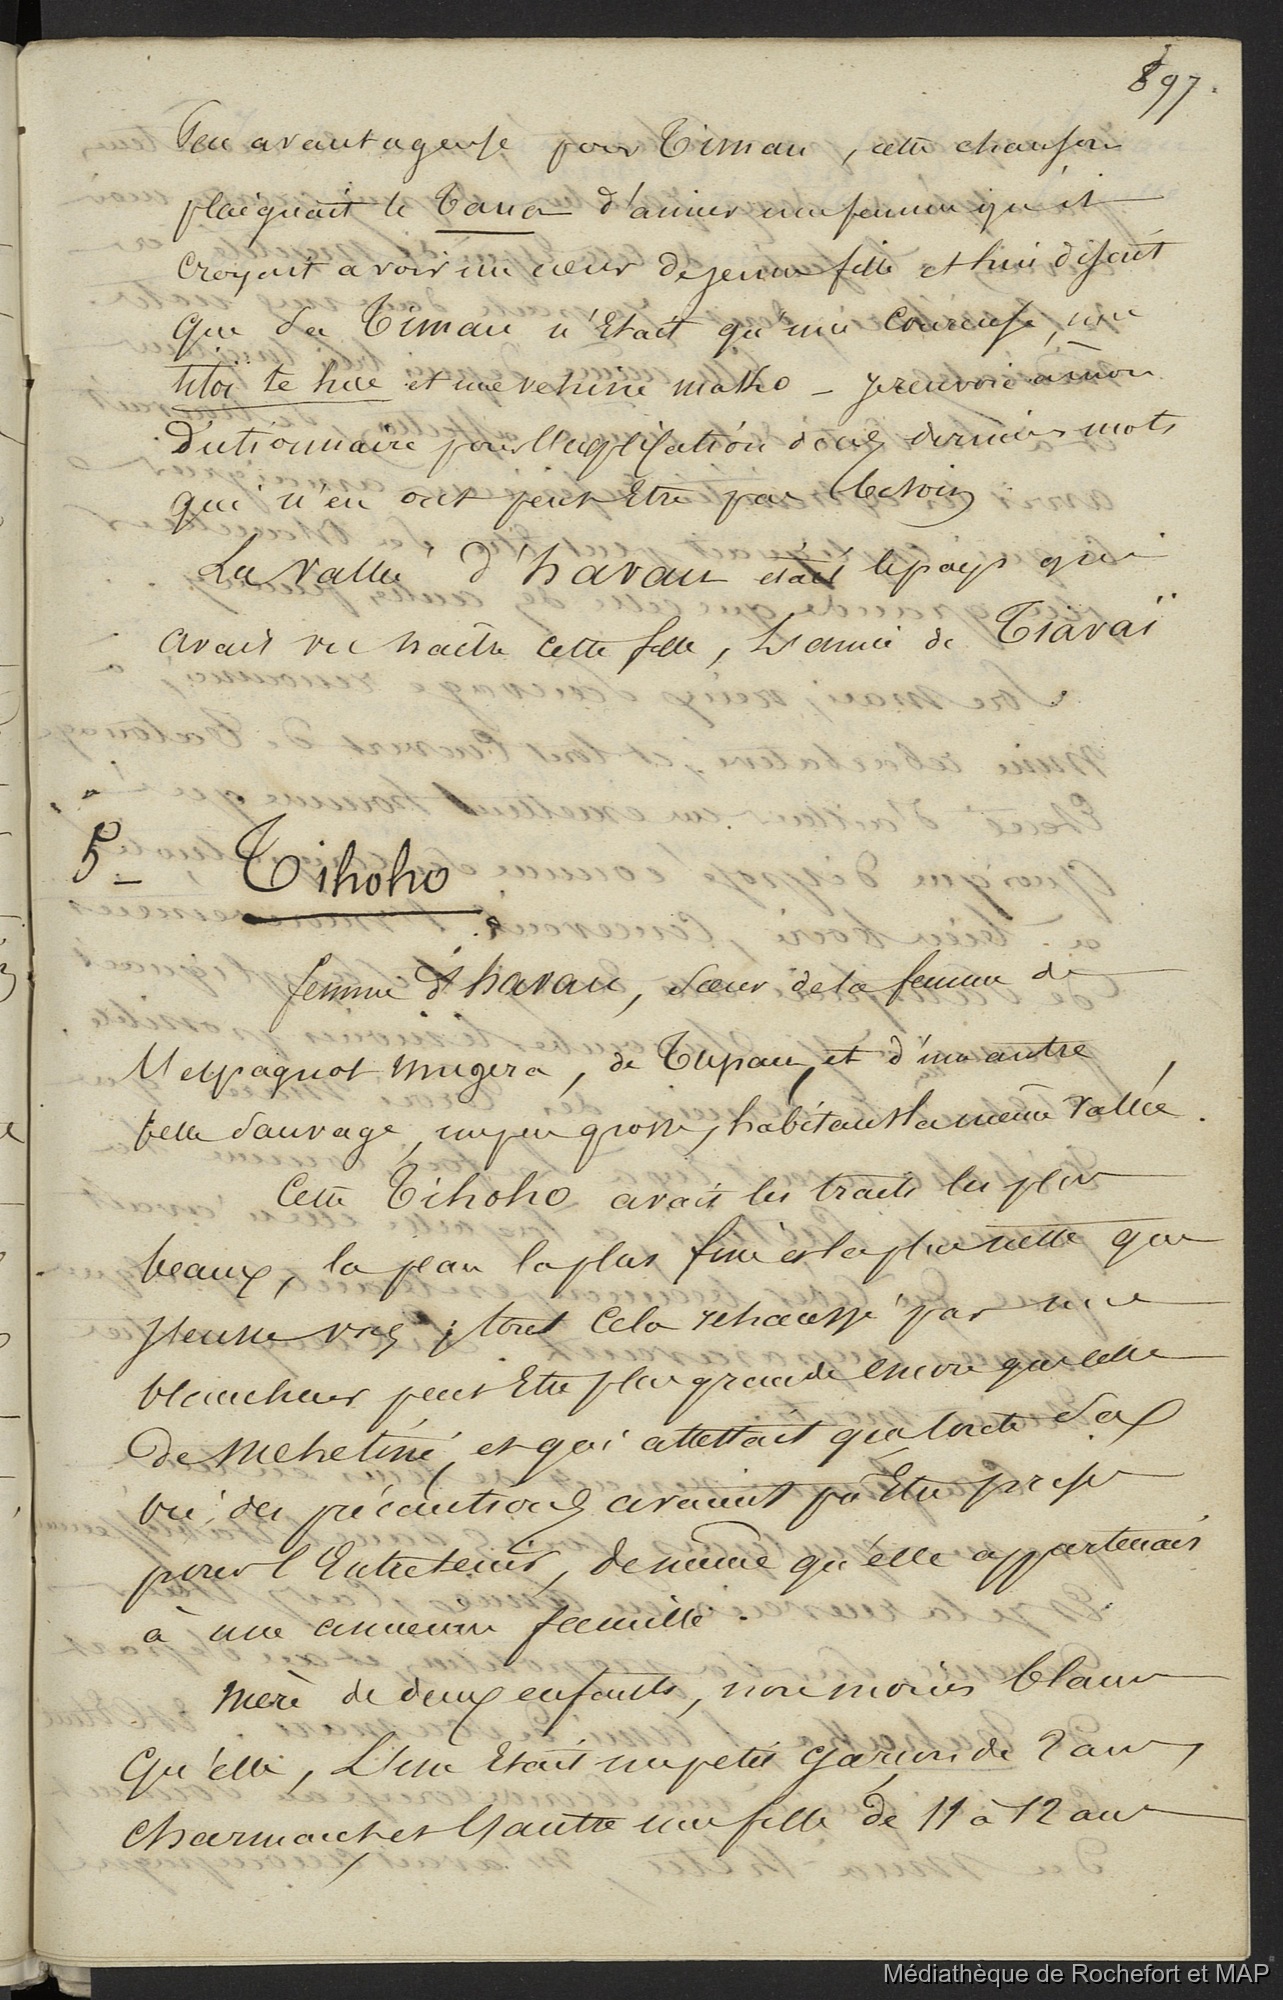 897.
Peu avantageuse pour Timau, cette chanson
plaignait le Tana d'aimer une femme qu'il
croyait avoir un cœur de jeune fille et lui disait
que sa Timau n'Etait qu'une coureuse, une
titoï te hue et une vehine mako _ je renvoie à mon
Dictionnaire pour l'explication de ces derniers mots
qui n'en ont peut Etre pas besoin
La vallée d'havau était le pays qui
avait vu naitre cette fille, L'amie de Tiavaï
5_ Tihoho
femme d'havau, sœur de la femme de
L'espagnol Mugera, de Tupau, et d'une autre
belle sauvage, un peu grosse, habitant la même vallée.
Cette Tihoho avait les traits les plus
beaux, la peau la plus fine et la plus nette que
j'eusse vus; tout cela rehaussé par une
blancheur peut Etre plus grande encore que celle
de Mehetiné, et qui attestait que toute sa
vie, des précautions avaient pu Etre prises
pour l'Entretenir, de même qu'elle appartenait
à une ancienne famille.
Mère de deux enfants, non moins blancs
qu'elle, L'un Etait un petit garçon de 2 ans,
charmant, et l'autre une fille de 11 à 12 ans
Médiathèque de Rochefort et MAP